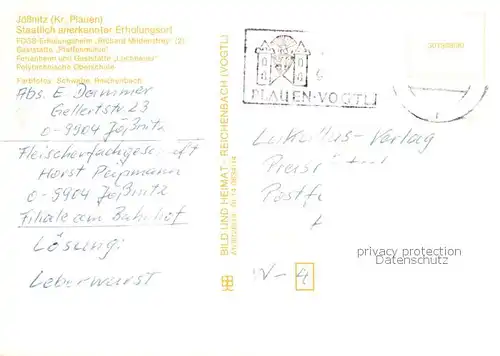 Jößnitz (Kr. Plauen)
Staatlich anerkannter Erholungsort
FDGB-Erholungsheim „Richard Mildenstrey“ (2)
Gaststätte „Pfaffenmühle“
Ferienheim und Gaststätte „Lochbauer“
Polytechnische Oberschule
Farbfotos: Schwabe, Reichenbach
Abs. E Dammer
Gellertstr 23
O-9904 Jößnitz
Fleischerfachgeschäft
Horst
O-9904 Jößnitz
Filiale am Bahnhof
Lösung:
Leberwurst
BILD UND HEIMAT · REICHENBACH (VOGTL)
PLAUEN·VOGTL
Lukullus-Verlag
Postf
W-4
privacy protection
Datenschutz